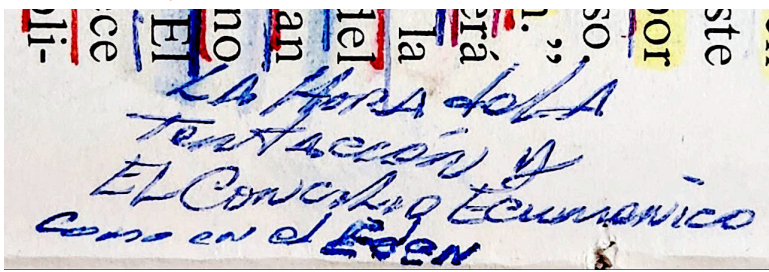 oli-
ce
El
no
an
del
la
erá
n.”
so.
por
ste
LA HORA de LA
Tentación y
EL Concilio Ecumenico
como en el Eden